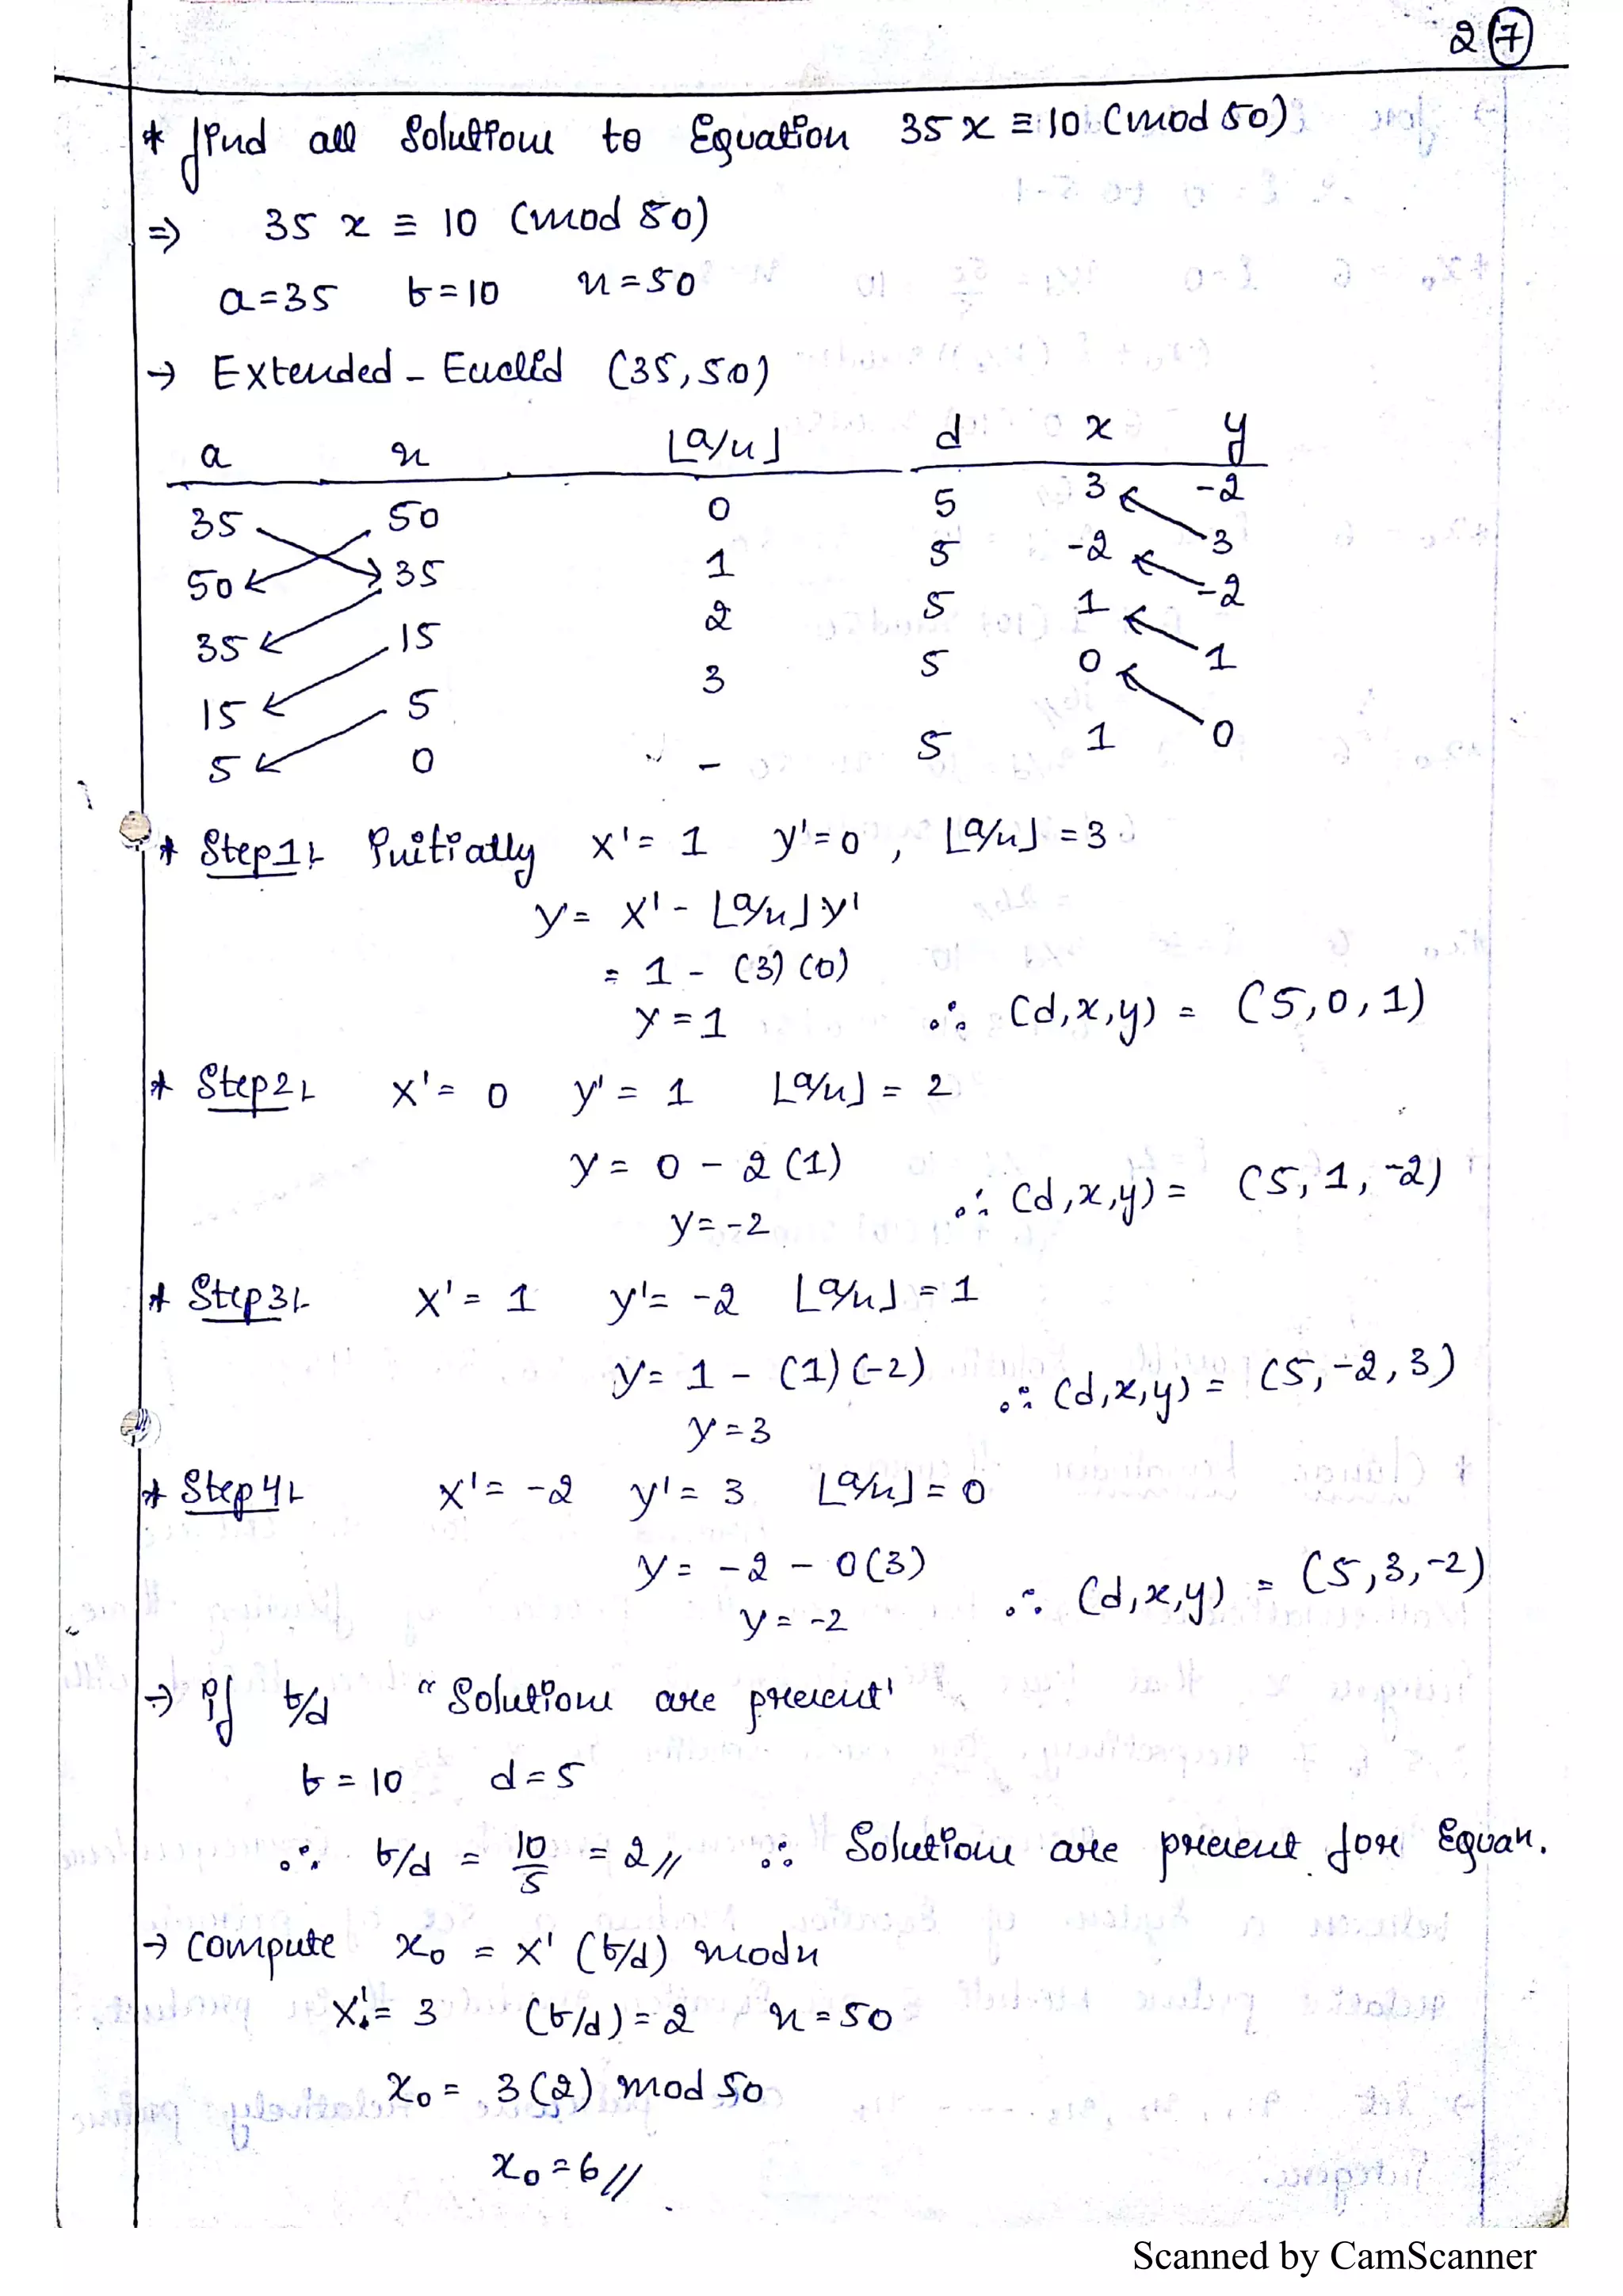 2 7
* find all solutions to Equation 35x ≡ 10 (mod 50)
⇒ 35 x ≡ 10 (mod 50)
a=35 b=10 n=50
→ Extended - Euclid (35,50)
a n ⌊a/n⌋ d x y
35 50 0 5 3 -2
50 35 1 5 -2 3
35 15 2 5 1 -2
15 5 3 5 0 1
5 0 - 5 1 0
* Step1:- Initially x'= 1 y'=0 , ⌊a/n⌋ =3
y= x' - ⌊a/n⌋ y'
= 1 - (3) (0)
y =1 ∴ (d,x,y) = (5,0,1)
* Step2:- x'= 0 y' = 1 ⌊a/n⌋ = 2
y = 0 - 2 (1)
y= -2 ∴ (d,x,y) = (5, 1, -2)
* Step3:- x' = 1 y'= -2 ⌊a/n⌋ = 1
y= 1 - (1) (-2)
y =3 ∴ (d,x,y) = (5, -2, 3)
* Step4:- x'= -2 y' = 3 ⌊a/n⌋ = 0
y = -2 - 0(3)
y = -2 ∴ (d,x,y) = (5,3,-2)
→ if b/d "Solutions are present'
b = 10 d=5
∴ b/d = 10/5 = 2// ∴ Solutions are present for Equan.
→ compute x₀ = x' (b/d) mod n
x'= 3 (b/d) = 2 n=50
x₀ = 3(2) mod 50
x₀ = 6//
Scanned by CamScanner